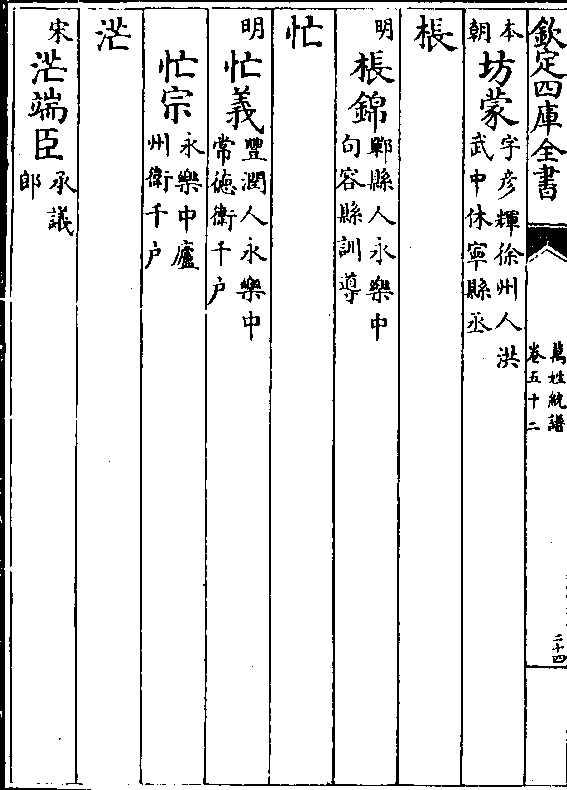 欽定四庫全書
萬姓統譜
卷五十二
二十四
本朝
坊蒙
字彦輝徐州人洪
武中休寧縣丞
棖
明
棖錦
鄞縣人永樂中
句容縣訓導
忙
明
忙義
豐潤人永樂中
常徳衛千户
忙宗
永樂中廬
州衛千户
茫
宋
茫端臣
承議
郎